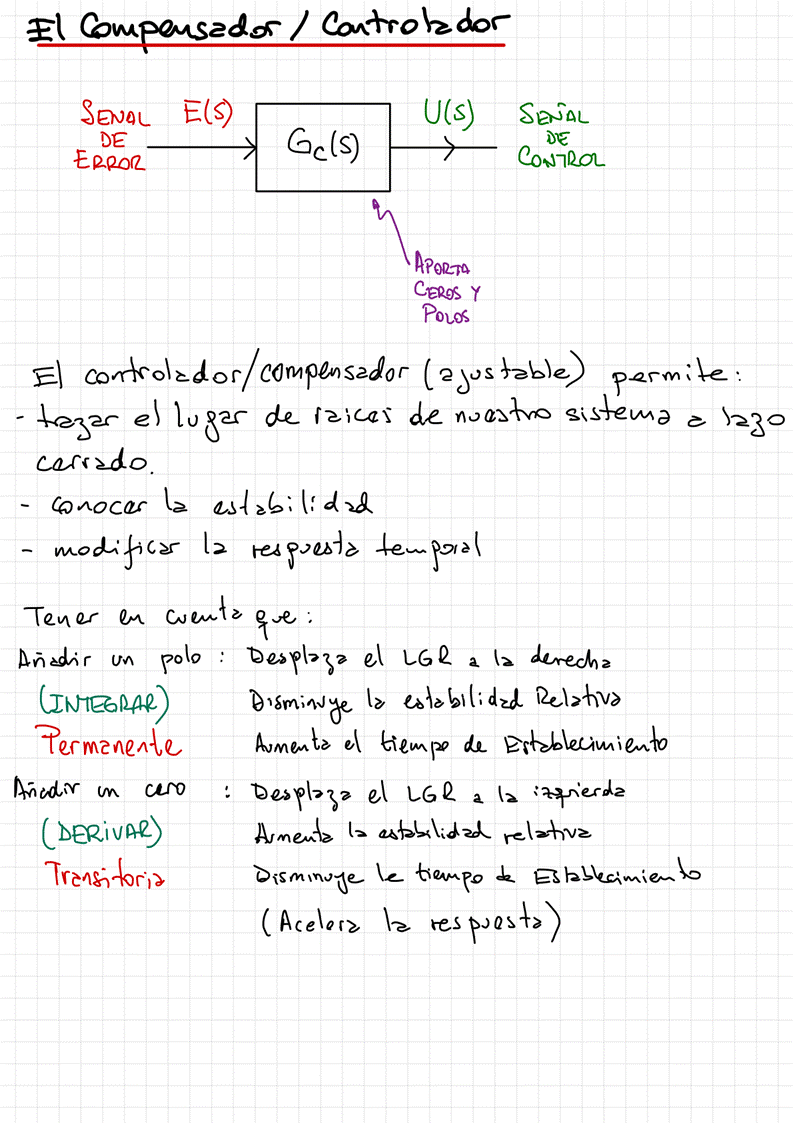 El Compensador / Controlador
SEÑAL DE ERROR
E(s)
Gc(s)
U(s)
SEÑAL DE CONTROL
APORTA
CEROS Y
POLOS
El controlador/compensador (ajustable) permite:
- trazar el lugar de raices de nuestro sistema a lazo
cerrado.
- conocer la estabilidad
- modificar la respuesta temporal
Tener en cuenta que:
Añadir un polo : Desplaza el LGR a la derecha
(INTEGRAR) Disminuye la estabilidad Relativa
Permanente Aumenta el tiempo de Establecimiento
Añadir un cero : Desplaza el LGR a la izquierda
(DERIVAR) Aumenta la estabilidad relativa
Transitoria Disminuye le tiempo de Establecimiento
(Acelera la respuesta)